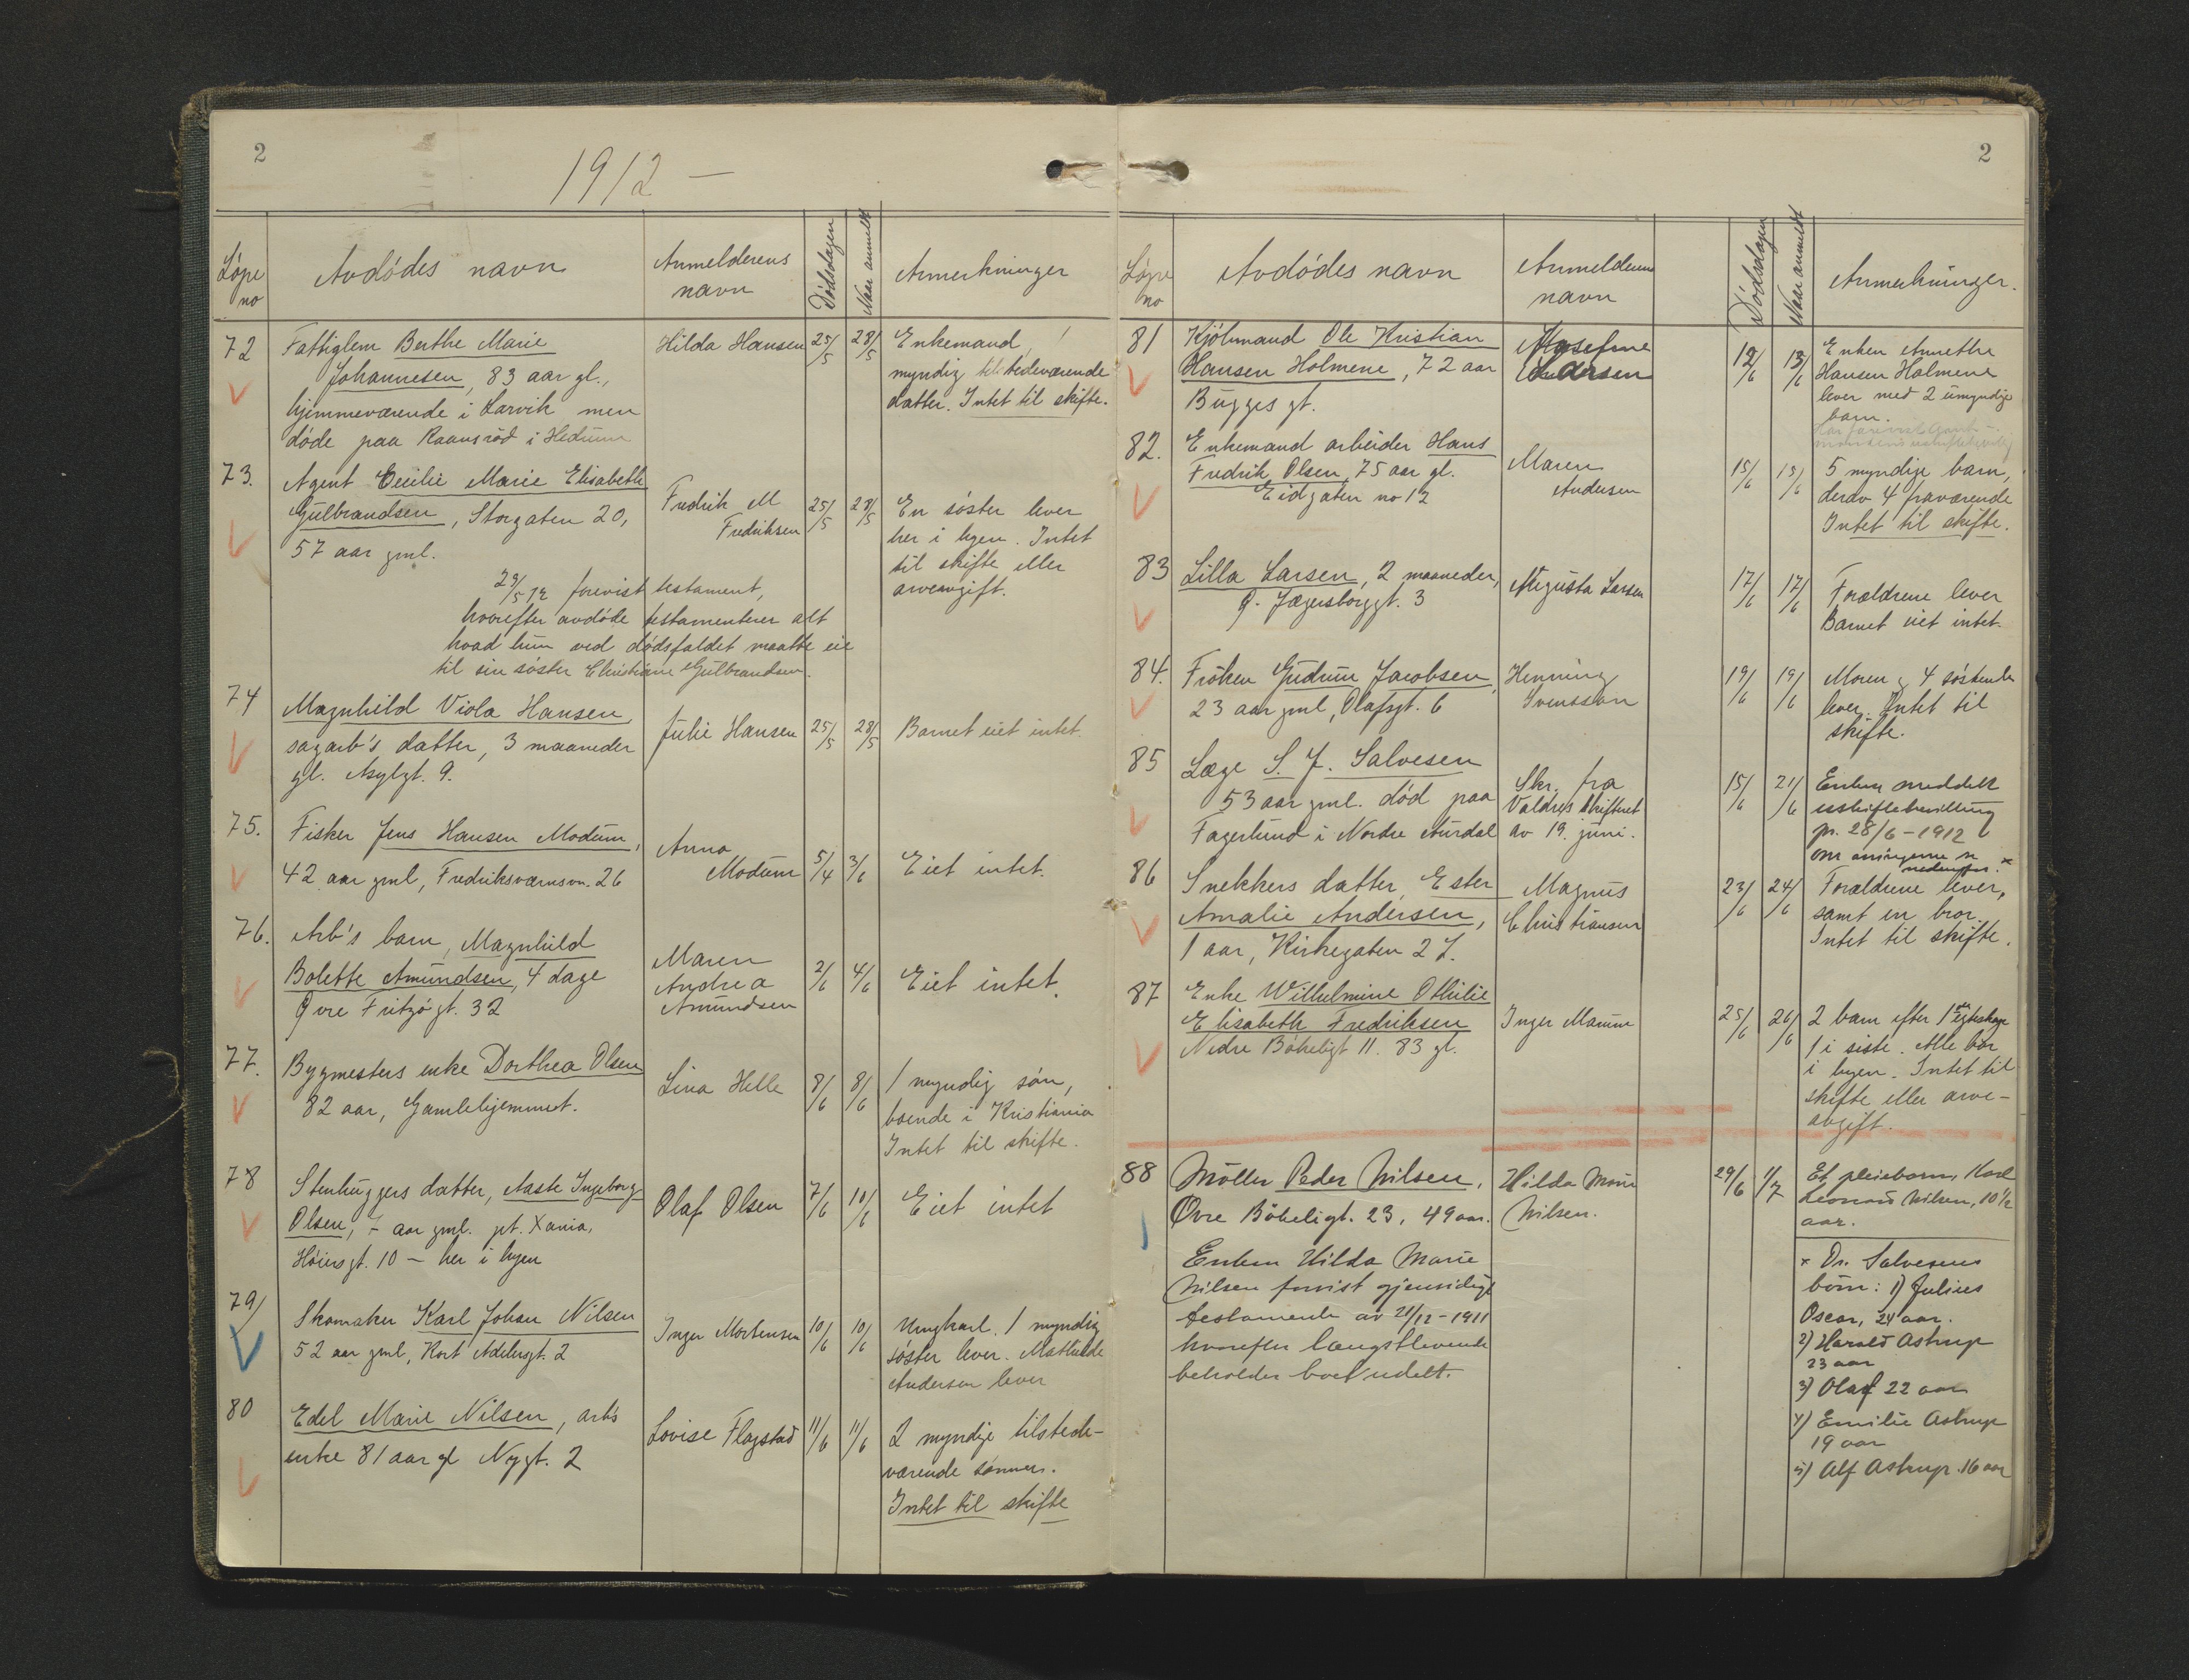 2
1912 —
Löpe no
Avdödes navn
Anmelderens navn
Dödsdagen
Naar anmeldt
Anmerkninger
72
Fattiglem Berthe Marie
Johannesen, 83 aar gl.,
hjemmeværende i Larvik men
döde paa Raansröd i Hedrum
Hilda Hansen
25/5
28/5
Enkemand,
myndig tilstedeværende
datter. Intet til skifte.
73.
Agent Cecilie Marie Elisabeth
Gulbrandsen, Storgaten 20,
57 aar gml.
Fredrik M
Fredriksen
25/5
28/5
En söster lever
her i byen. Intet
til skifte eller
arveavgift.
29/5 12 forevist testament,
hvorefter avdöde testamenterer alt
hvad hun ved dödsfaldet maatte eie
til sin söster Christiane Gulbrandsen.
74
Magnhild Viola Hansen,
sagarb's datter, 3 maaneder
gl. Asylgt. 9.
Julie Hansen
25/5
28/5
Barnet eiet intet.
75.
Fisker Jens Hansen Modum,
42 aar gml, Fredriksværnsvn. 26
Anna
Modum
5/4
3/6
Eiet intet.
76.
Arb's barn, Magnhild
Bolette Amundsen, 4 dage
Øvre Fritzögt. 32
Maren
Andrea
Amundsen
2/6
4/6
Eiet intet.
77.
Bygmesters enke Dorthea Olsen
82 aar, Gamlehjemmet.
Lina Helle
8/6
8/6
1 myndig sön,
boende i Kristiania
Intet til skifte.
78
Stenhuggers datter, Aaste Ingeborg
Olsen, 7 aar gml. pt. Xania,
Höiersgt. 10 — her i byen
Olaf Olsen
7/6
10/6
Eiet intet
79/
Skomaker Karl Johan Nilsen
52 aar gml, Kort Adelersgt. 2
Inger Mortensen
10/6
10/6
Ungkarl. 1 myndig
söster lever. Mathilde
Andersen lever
80
Edel Marie Nilsen, arb's
enke 81 aar gl Nygt. 2
Lovise Flagstad
11/6
11/6
2 myndige tilstede-
værende sönner.
Intet til skifte
2
Löpe no
Avdödes navn
Anmelderens navn
Dödsdagen
Naar anmeldt
Anmerkninger.
81
Kjöbmand Ole Kristian
Hansen Holmene, 72 aar
Bugges gt.
Larsen
12/6
13/6
Enken Annethe
Hansen Holmene
lever med 2 umyndige
barn.
82.
Enkemand arbeider Hans
Fredrik Olsen, 75 aar gl.
Eidgaten no 12
Maren
Andersen
15/6
15/6
5 myndige barn,
derav 4 fraværende
Intet til skifte.
83
Lilla Larsen, 2 maaneder,
Ø. Jægersborggt. 3
Augusta Larsen
17/6
17/6
Forældrene lever
Barnet eiet intet.
84.
Fröken Gudrun Jacobsen,
23 aar gml, Olafsgt. 6
Henning
Svensson
19/6
19/6
Moren og 4 söskende
lever. Intet til
skifte.
85
Læge S. J. Salvesen
53 aar gml. död paa
Fagerlund i Nordre Aurdal
Skr. fra
Valdres skifteret
av 19. juni.
15/6
21/6
Enken meddelt
uskiftebevilling
pr. 28/6 - 1912
om arvingerne se
nedenfor. x
86
Snekkers datter, Ester
Amalie Andersen,
1 aar, Kirkegaten 2 I.
Magnus
Christiansen
23/6
24/6
Forældrene lever,
samt en bror.
Intet til skifte.
87
Enke Wilhelmine Othilie
Elisabeth Fredriksen
Nedre Bökeligt 11. 83 gl.
Inger Marum
25/6
26/6
2 barn efter 1ste egteskap
1 i siste. Alle bor
i byen. Intet til
skifte eller arve-
avgift.
88
Möller Peder Nilsen,
Øvre Bökeligt. 23, 49 aar.
Hilda Marie
Nilsen.
29/6
1/7
Et pleiebarn, Karl
Leonard Nilsen, 10 1/2
aar.
Enken Hilda Marie
Nilsen forvist gjensidigt
testamente av 21/12 - 1911
hvorefter længstlevende
beholder boet udelt.
x Dr. Salvesens
börn: 1) Julius
Oscar, 24 aar.
2) Harald Astrup
23 aar
3) Olaf 22 aar
4) Emilie Astrup
19 aar
5) Alf Astrup. 16 aar